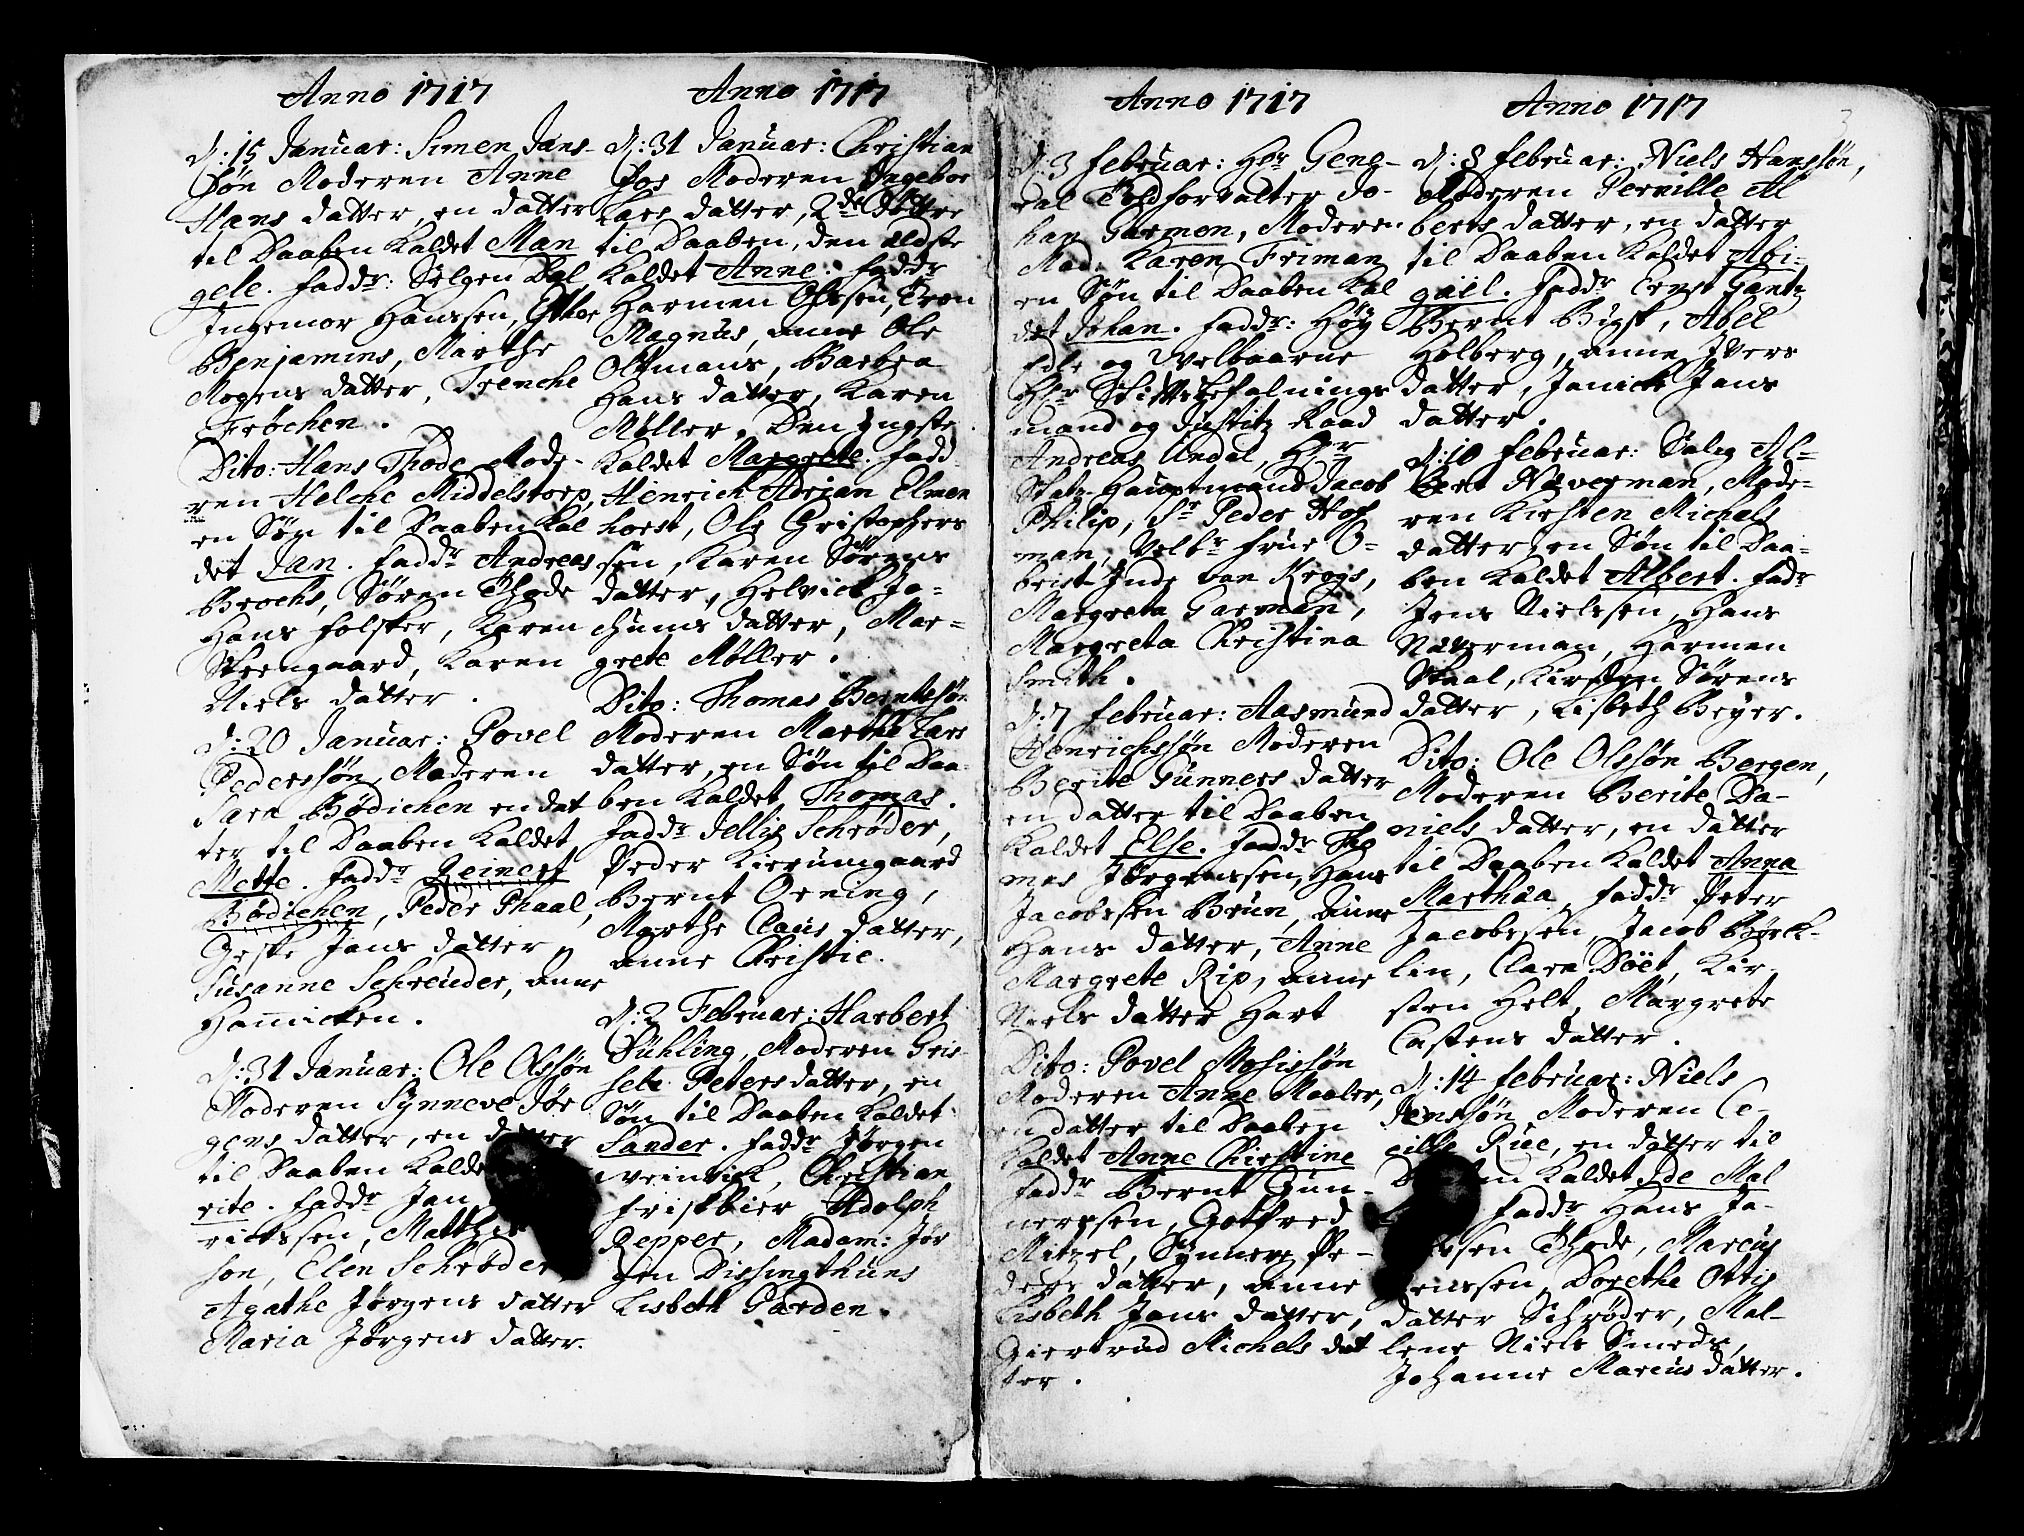 Anno 1717
d: 15 Januar: Simen Jans-
søn Moderen Anne
Hans datter, en datter
til Daaben kaldet Man
gele. fadd.r: Sølgen Dal
Ingemor Hanssen, Esther
Benjamins, Marthe
Mogens datter, Trenche
Frøchen.
Dito: Hans Thode Mode-
ren Helche Middelstorp,
en Søn til Daaben kal
det Jan. fadd.r Andreas
Brochs, Søren Thode
Hans folster, Karen
Steengaard, Karen
Niels datter.
d: 20 Januar: Povel
Pederssøn, Moderen
Sara Bødichen en dat
ter til Daaben kaldet
Mette. fadd.r Reinert
Bødichen, Peder Thaal,
Geske Jans datter
Susanne Schreuder, Anne
Hannicken.
d: 31 Januar: Ole Olssøn
Moderen Synneve Jør
gens datter, en datter
til Daaben kalde
rite. fadd.r Jan
richssen, Matthi
son, Elen Schrøder,
Agathe Jørgens datter
Maria Jørgens datter.
Anno 1717
d: 31 Januar: Christian
Fos Moderen Ingebor
Lars datter, 2de Døttre
til Daaben, den ældste
kaldet Anne. fadd.r
Harmen Olssen, Iven
Magnus, Anne Ole
Oltmans, Barbra
Hans datter, Karen
Møller. Den yngste
kaldet Margrete. fadd
Henrich Adrian Elmen
horst, Ole Christophers
sen, Karen Sørens
datter, Helvich Jo-
chums datter, Mar-
grete Møller.
Dito: Thomas Berntssøn
Moderen Marthe Lars
datter, en Søn til Daa
ben kaldet Thomas.
fadd.r Jellis Schrøder,
Peder Kierumgaard
Bernt Oening,
Marthe Claus datter,
Anne Christie.
d: 2 Februar: Harbert
Sühling, Moderen Gris
sele Peters datter, en
Søn til Daaben kaldet
Sander. fadd.r Jørgen
Weinvich, Christian
Friskbier Adolph
Repper, Madam: Jør
gen Dissingthuns
Lisbeth Garden.
Anno 1717
d: 3 februar: Hr. Gene-
ral Toldforvalter Jo-
han Garmon, Moderen
Mad. Karen Friman
en Søn til Daaben kal
det Johan. fadd.r: Høy
Edle og Welbaarne
Hr Stiftsbefalnings
mand og Justitz Raad
Andreas Undal, Hr
Stats Hauptmand Jacob
Philip, Sr Peder Hof
man, Velb.r frue O-
berst Inde van Krogs,
Margreta Garman,
Margreta Christina
Smith.
d: 7 februar: Aasmund
Henrichssøn Moderen
Berite Gunners datter
en datter til Daaben
kaldet Else. fadd.r Tho
mas Jørgenssen, Hans
Jacobssen Brun, Anne
Hans datter, Anne
Margrete Rip, Anne
Niels datter Hart
Dito: Povel Mosissøn
Moderen Anne Maaler,
en datter til Daaben
kaldet Anne Christine
fadd.r Bernt Gun-
nerssen, Gotfred
Mitzel, Synneve Pe-
ders datter, Anne
Lisbeth Jans datter,
Giertrud Michels dat
ter.
Anno 1717
3
d: 8 februar: Niels Hanssøn,
Moderen Pernille Al
berts datter, en datter
til Daaben kaldet Abi-
gaiel. fadd.r Cenet Gantz
Bernt Bugt, Abel
Holberg, Anne Ivers
datter, Janiche Jans
datter.
d: 10 februar: Salig Al-
bert Næverman, Mode-
ren Kirsten Michels
datter, en Søn til Daa-
ben kaldet Albert. fadd.r
Jens Nielssen, Hans
Næverman, Harmen
Staal, Kirsten Sørens
datter, Lisbeth Beyer.
Dito: Ole Olssøn Bergen,
Moderen Berite Da-
niels datter, en datter
til Daaben kaldet Anna
Marthaa, fadd.r Peter
Jacobssen, Jacob Børk-
lin, Clara Døet, Kir
sten Helt, Margrete
Castens datter.
d: 14 februar: Niels
Jenssøn, Moderen Ce-
cille Rüe, en datter til
kaldet Ide Mal
fadd.r Hans Ja-
Thode, Marcus
Dorethe Ottis
datter Schrøder, Mal-
lene Niels Smeds,
Johanne Marcus datter.